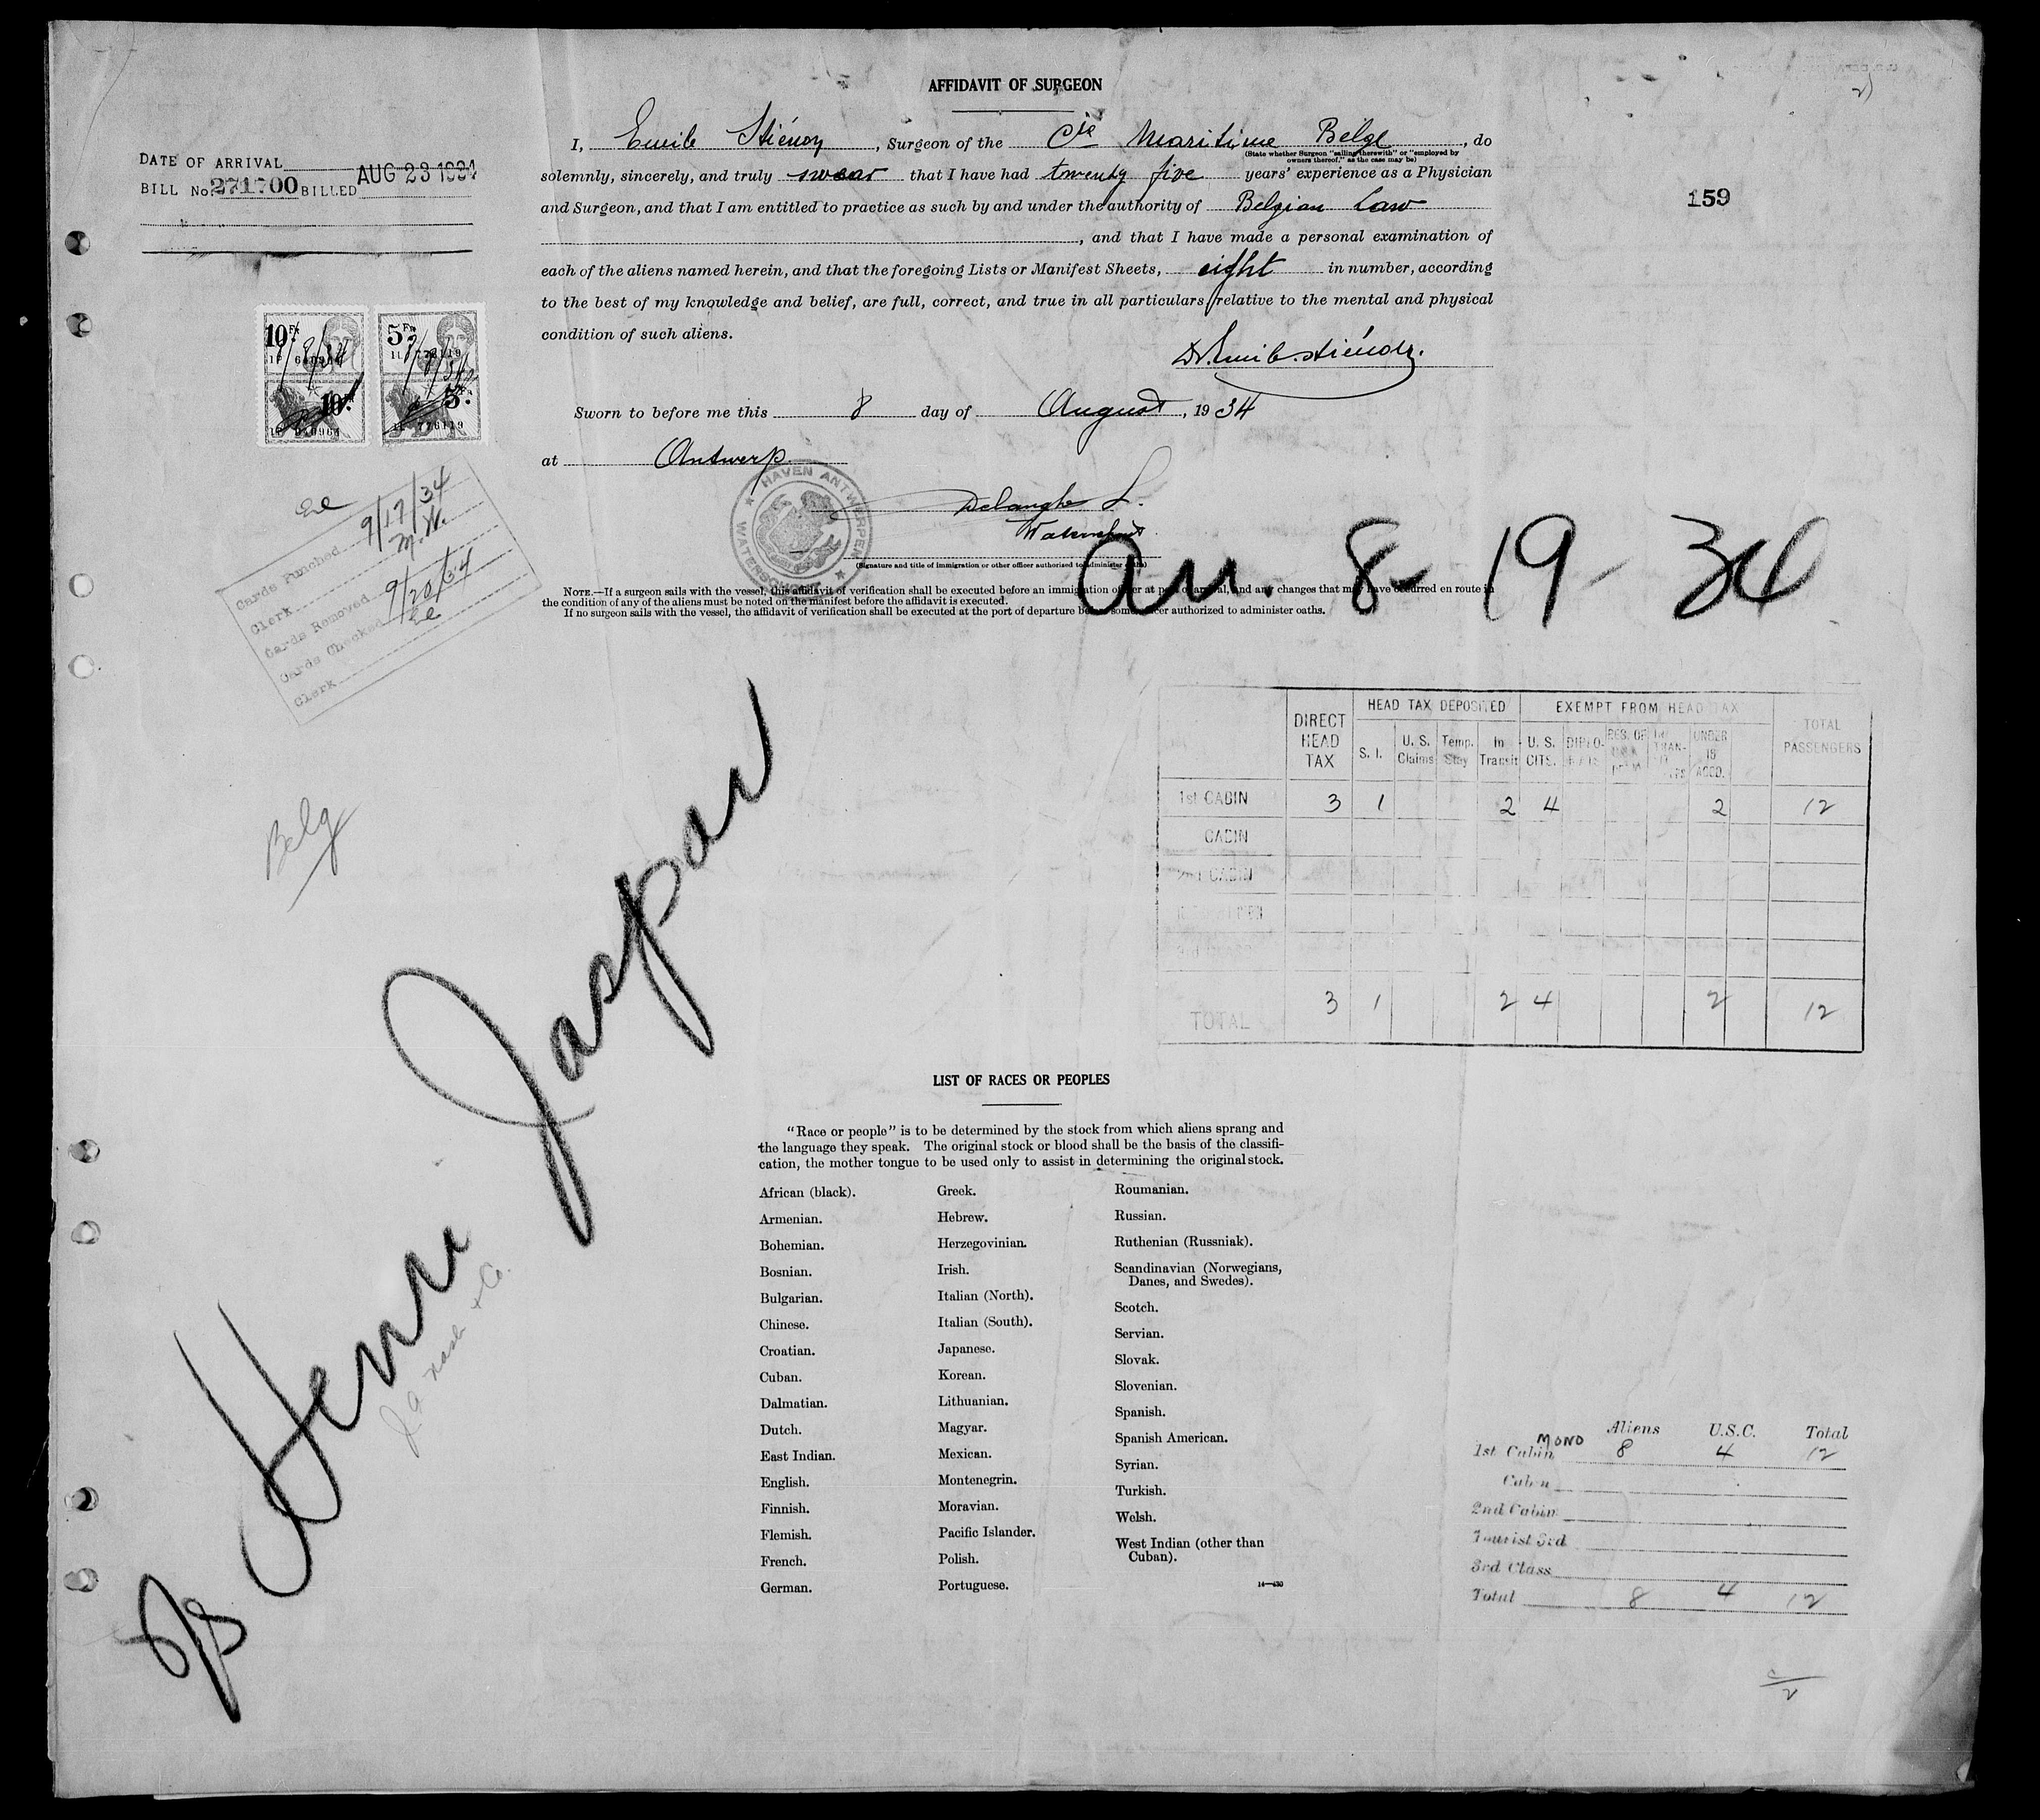 AFFIDAVIT OF SURGEON
I, Emile Stiénon, Surgeon of the Cie Maritime Belge, do
(State whether Surgeon "sailing therewith" or "employed by
owners thereof," as the case may be)
solemnly, sincerely, and truly swear that I have had twenty five years' experience as a Physician
and Surgeon, and that I am entitled to practice as such by and under the authority of Belgian Law
, and that I have made a personal examination of
each of the aliens named herein, and that the foregoing Lists or Manifest Sheets, eight in number, according
to the best of my knowledge and belief, are full, correct, and true in all particulars relative to the mental and physical
condition of such aliens.
Dr. Emile Stiénon.
Sworn to before me this 8 day of August, 1934
at Antwerp
HAVEN ANTWERPEN
WATERSCHOUT
Delanghe L.
Waterschout
(Signature and title of immigration or other officer authorized to administer oaths)
NOTE.—If a surgeon sails with the vessel, this affidavit of verification shall be executed before an immigration officer at port of arrival, and any changes that may have occurred en route in
the condition of any of the aliens must be noted on the manifest before the affidavit is executed.
If no surgeon sails with the vessel, the affidavit of verification shall be executed at the port of departure before some officer authorized to administer oaths.
DATE OF ARRIVAL
BILL No. 271700 BILLED AUG 23 1934
159
10 Fr
5 Fr
10 Fr
5 Fr
776119
Cards Punched 9/17/34
Clerk M.W.
Cards Removed 9/20/34
Cards Checked Ee
Clerk
Ee
Arr. 8-19-34
Belg
S/S Henri Jaspar
J a Nash & Co.
DIRECT HEAD TAX
HEAD TAX DEPOSITED
EXEMPT FROM HEAD TAX
TOTAL PASSENGERS
S. I.
U. S. Claims
Temp. Stay
In Transit
U. S. CITS.
DIPLO-
RES. OF
TRAN-
UNDER 16 ACCD.
1st CABIN 3 1 2 4 2 12
CABIN
2nd CABIN
TOTAL 3 1 2 4 2 12
LIST OF RACES OR PEOPLES
"Race or people" is to be determined by the stock from which aliens sprang and
the language they speak. The original stock or blood shall be the basis of the classifi-
cation, the mother tongue to be used only to assist in determining the original stock.
African (black).
Armenian.
Bohemian.
Bosnian.
Bulgarian.
Chinese.
Croatian.
Cuban.
Dalmatian.
Dutch.
East Indian.
English.
Finnish.
Flemish.
French.
German.
Greek.
Hebrew.
Herzegovinian.
Irish.
Italian (North).
Italian (South).
Japanese.
Korean.
Lithuanian.
Magyar.
Mexican.
Montenegrin.
Moravian.
Pacific Islander.
Polish.
Portuguese.
Roumanian.
Russian.
Ruthenian (Russniak).
Scandinavian (Norwegians,
Danes, and Swedes).
Scotch.
Servian.
Slovak.
Slovenian.
Spanish.
Spanish American.
Syrian.
Turkish.
Welsh.
West Indian (other than
Cuban).
14—430
Aliens U.S.C. Total
1st Cabin MONO 8 4 12
Cabin
2nd Cabin
Tourist 3rd
3rd Class
Total 8 4 12